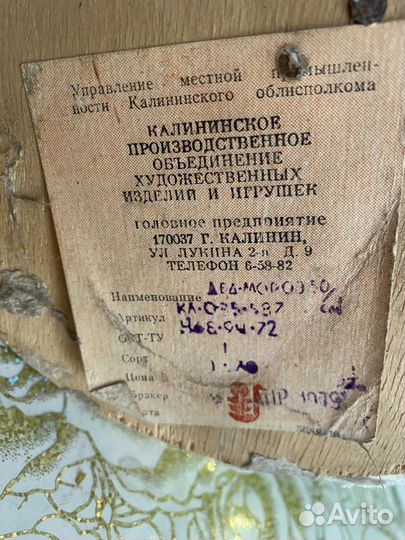 Управление местной промышлен-
ности Калининского облисполкома
КАЛИНИНСКОЕ
ПРОИЗВОДСТВЕННОЕ
ОБЪЕДИНЕНИЕ
ХУДОЖЕСТВЕННЫХ
ИЗДЕЛИЙ И ИГРУШЕК
головное предприятие
170037 Г. КАЛИНИН,
УЛ ЛУКИНА 2-я Д. 9
ТЕЛЕФОН 6-58-82
Наименование ДЕД-МОРОЗ 50/
Артикул см
ОСТ-ТУ
Сорт 1
Цена
АПР 1979
Avito